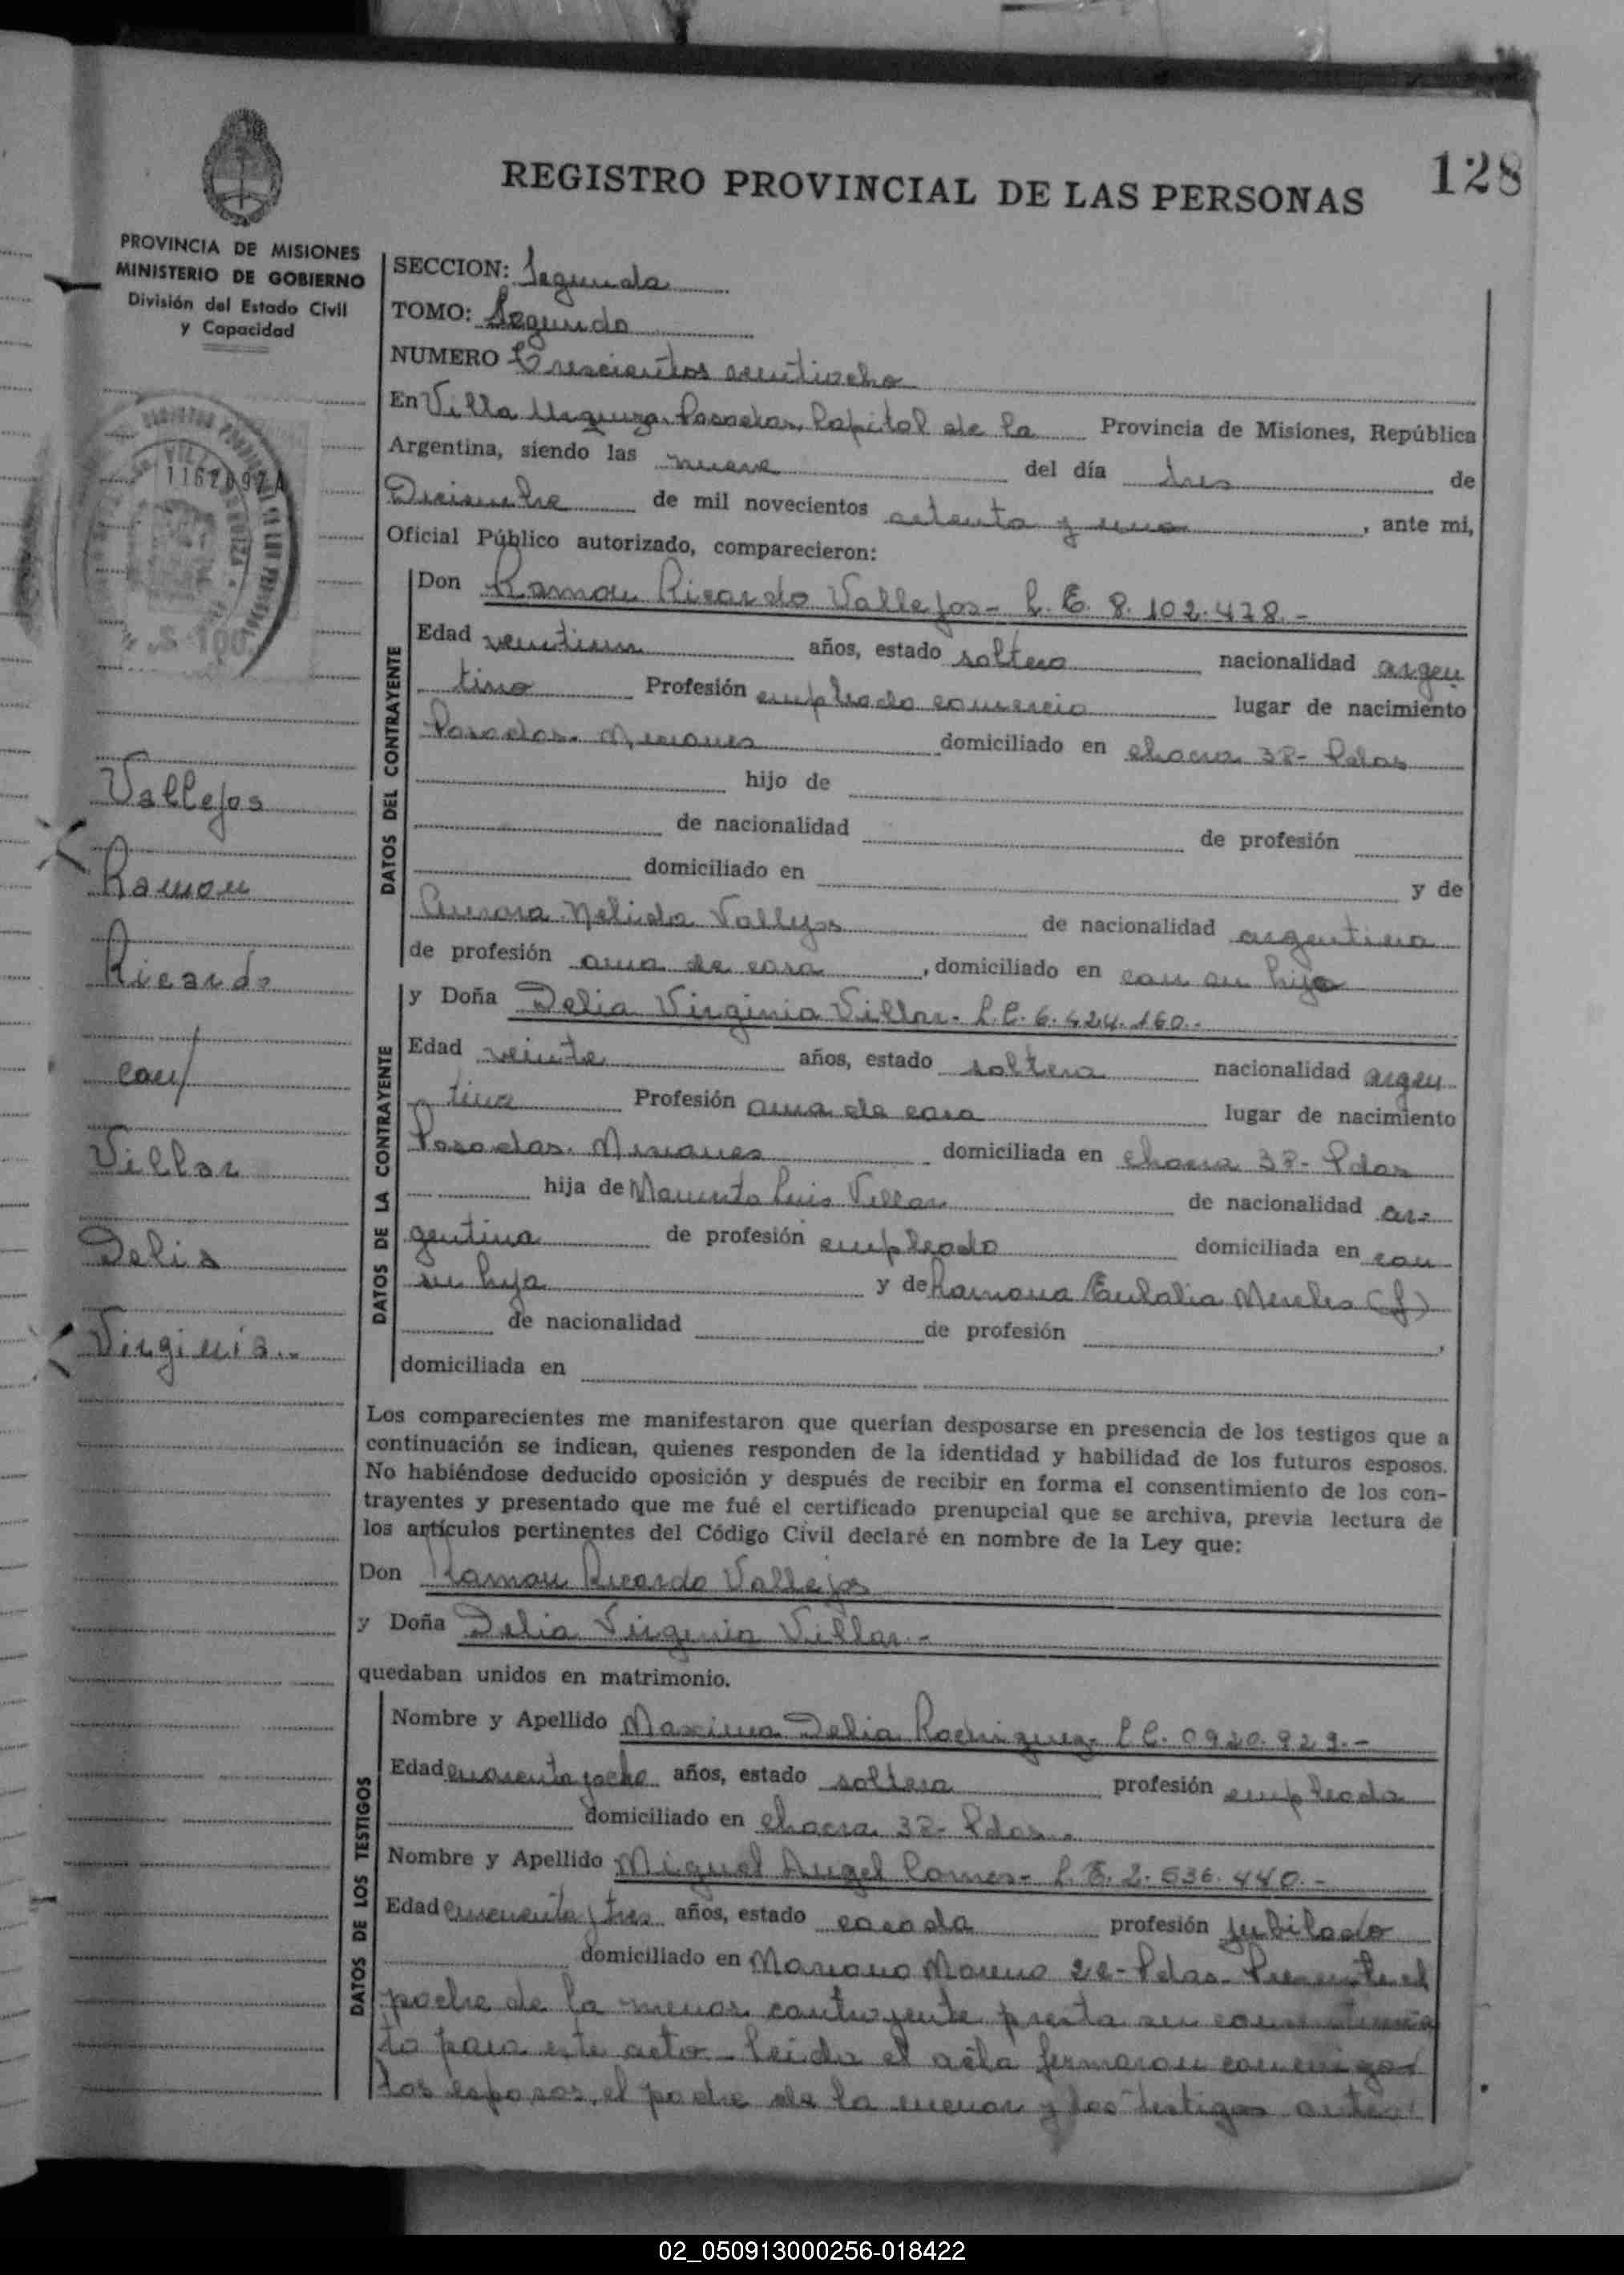 128
REGISTRO PROVINCIAL DE LAS PERSONAS
PROVINCIA DE MISIONES
MINISTERIO DE GOBIERNO
División del Estado Civil
y Capacidad
1162092A
S 100
Vallejos
Ramon
Ricardo
con/
Villar
Delia
Virginia.-
SECCION: Segunda
TOMO: Segundo
NUMERO Trescientos ventiocho
En Villa Urquiza. Posadas, Capital de la Provincia de Misiones, República
Argentina, siendo las nueve del día tres de
Diciembre de mil novecientos setenta y uno, ante mi,
Oficial Público autorizado, comparecieron:
DATOS DEL CONTRAYENTE
Don Ramon Ricardo Vallejos- L.E. 8.102.478.-
Edad ventiun años, estado soltero nacionalidad argen
tino Profesión empleado comercio lugar de nacimiento
Posadas. Misiones domiciliado en chacra 38- Pdas
hijo de
de nacionalidad de profesión
domiciliado en y de
Aurora Nelida Vallejos de nacionalidad argentina
de profesión ama de casa, domiciliado en con su hijo
DATOS DE LA CONTRAYENTE
y Doña Delia Virginia Villar- L.C. 6.424.160.-
Edad veinte años, estado soltera nacionalidad argen
tina Profesión ama de casa lugar de nacimiento
Posadas. Misiones domiciliada en chacra 38- Pdas
hija de Luis Villar de nacionalidad ar-
gentina de profesión empleado domiciliada en con
su hija y de Ramona Eulalia Mereles (f)
de nacionalidad de profesión,
domiciliada en
Los comparecientes me manifestaron que querían desposarse en presencia de los testigos que a
continuación se indican, quienes responden de la identidad y habilidad de los futuros esposos.
No habiéndose deducido oposición y después de recibir en forma el consentimiento de los con-
trayentes y presentado que me fué el certificado prenupcial que se archiva, previa lectura de
los artículos pertinentes del Código Civil declaré en nombre de la Ley que:
Don Ramon Ricardo Vallejos
y Doña Delia Virginia Villar.-
quedaban unidos en matrimonio.
DATOS DE LOS TESTIGOS
Nombre y Apellido Maxima Delia Rodriguez- L.C. 0.920.929.-
Edad cuarenta y ocho años, estado soltera profesión empleada
domiciliado en chacra 38- Pdas.
Nombre y Apellido Miguel Angel Comes- L.E. 2.536.440.-
Edad cincuenta y tres años, estado casado profesión jubilado
domiciliado en Mariano Moreno 22- Pdas- Presente el
padre de la menor contrayente presta su consentimien
to para este acto- Leida el acta firmaron conmigo
los esposos, el padre de la menor y los testigos antes
02_050913000256-018422